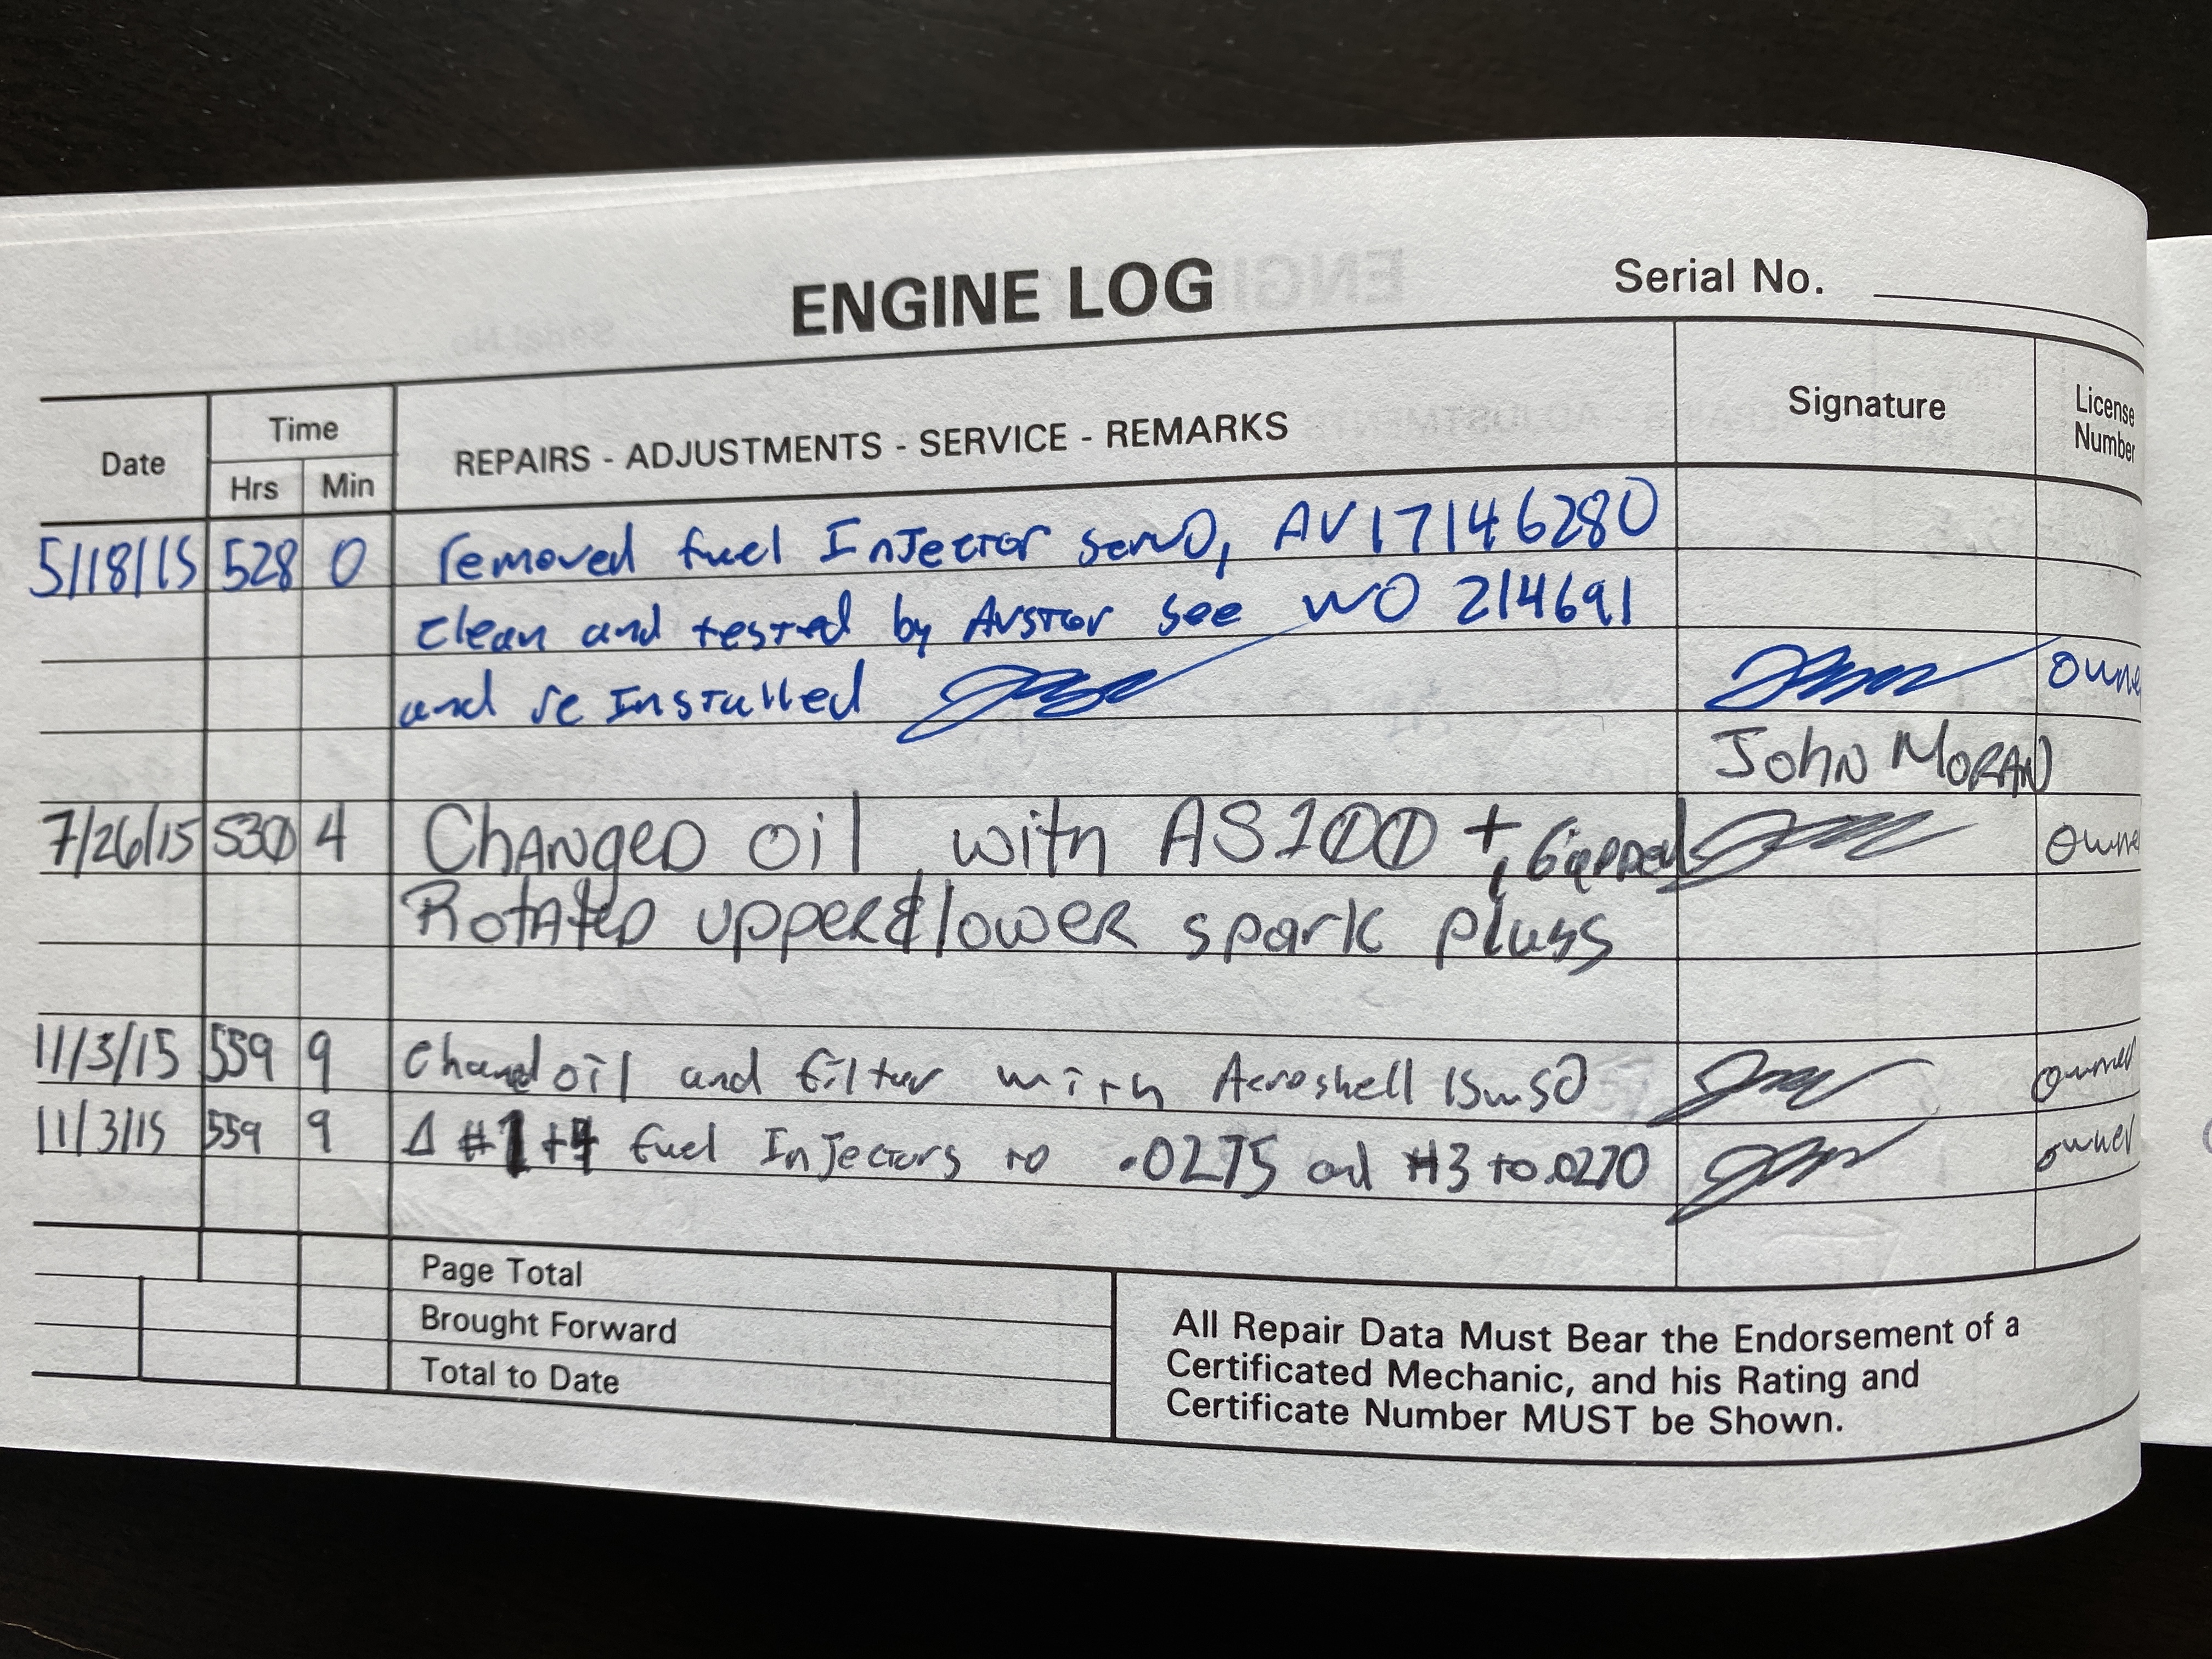 ENGINE LOG
Serial No.
Date
Time
Hrs Min
REPAIRS - ADJUSTMENTS - SERVICE - REMARKS
Signature
License
Number
5/18/15 528 0 removed fuel InJector servo, AV17146280
clean and tested by Avstar see WO 214691
and re Installed owne
John MORAN
7/26/15 530 4 ChANgeD oil with AS100 +, Gapped owne
RotAteD uppeR & lowER spark plugs
11/3/15 559 9 Changd oil and filtur with Aeroshell 15w50 owner
11/3/15 559 9 Δ #1+4 fuel InJectors to .0275 and #3 to .0270 owner
Page Total
Brought Forward
Total to Date
All Repair Data Must Bear the Endorsement of a
Certificated Mechanic, and his Rating and
Certificate Number MUST be Shown.